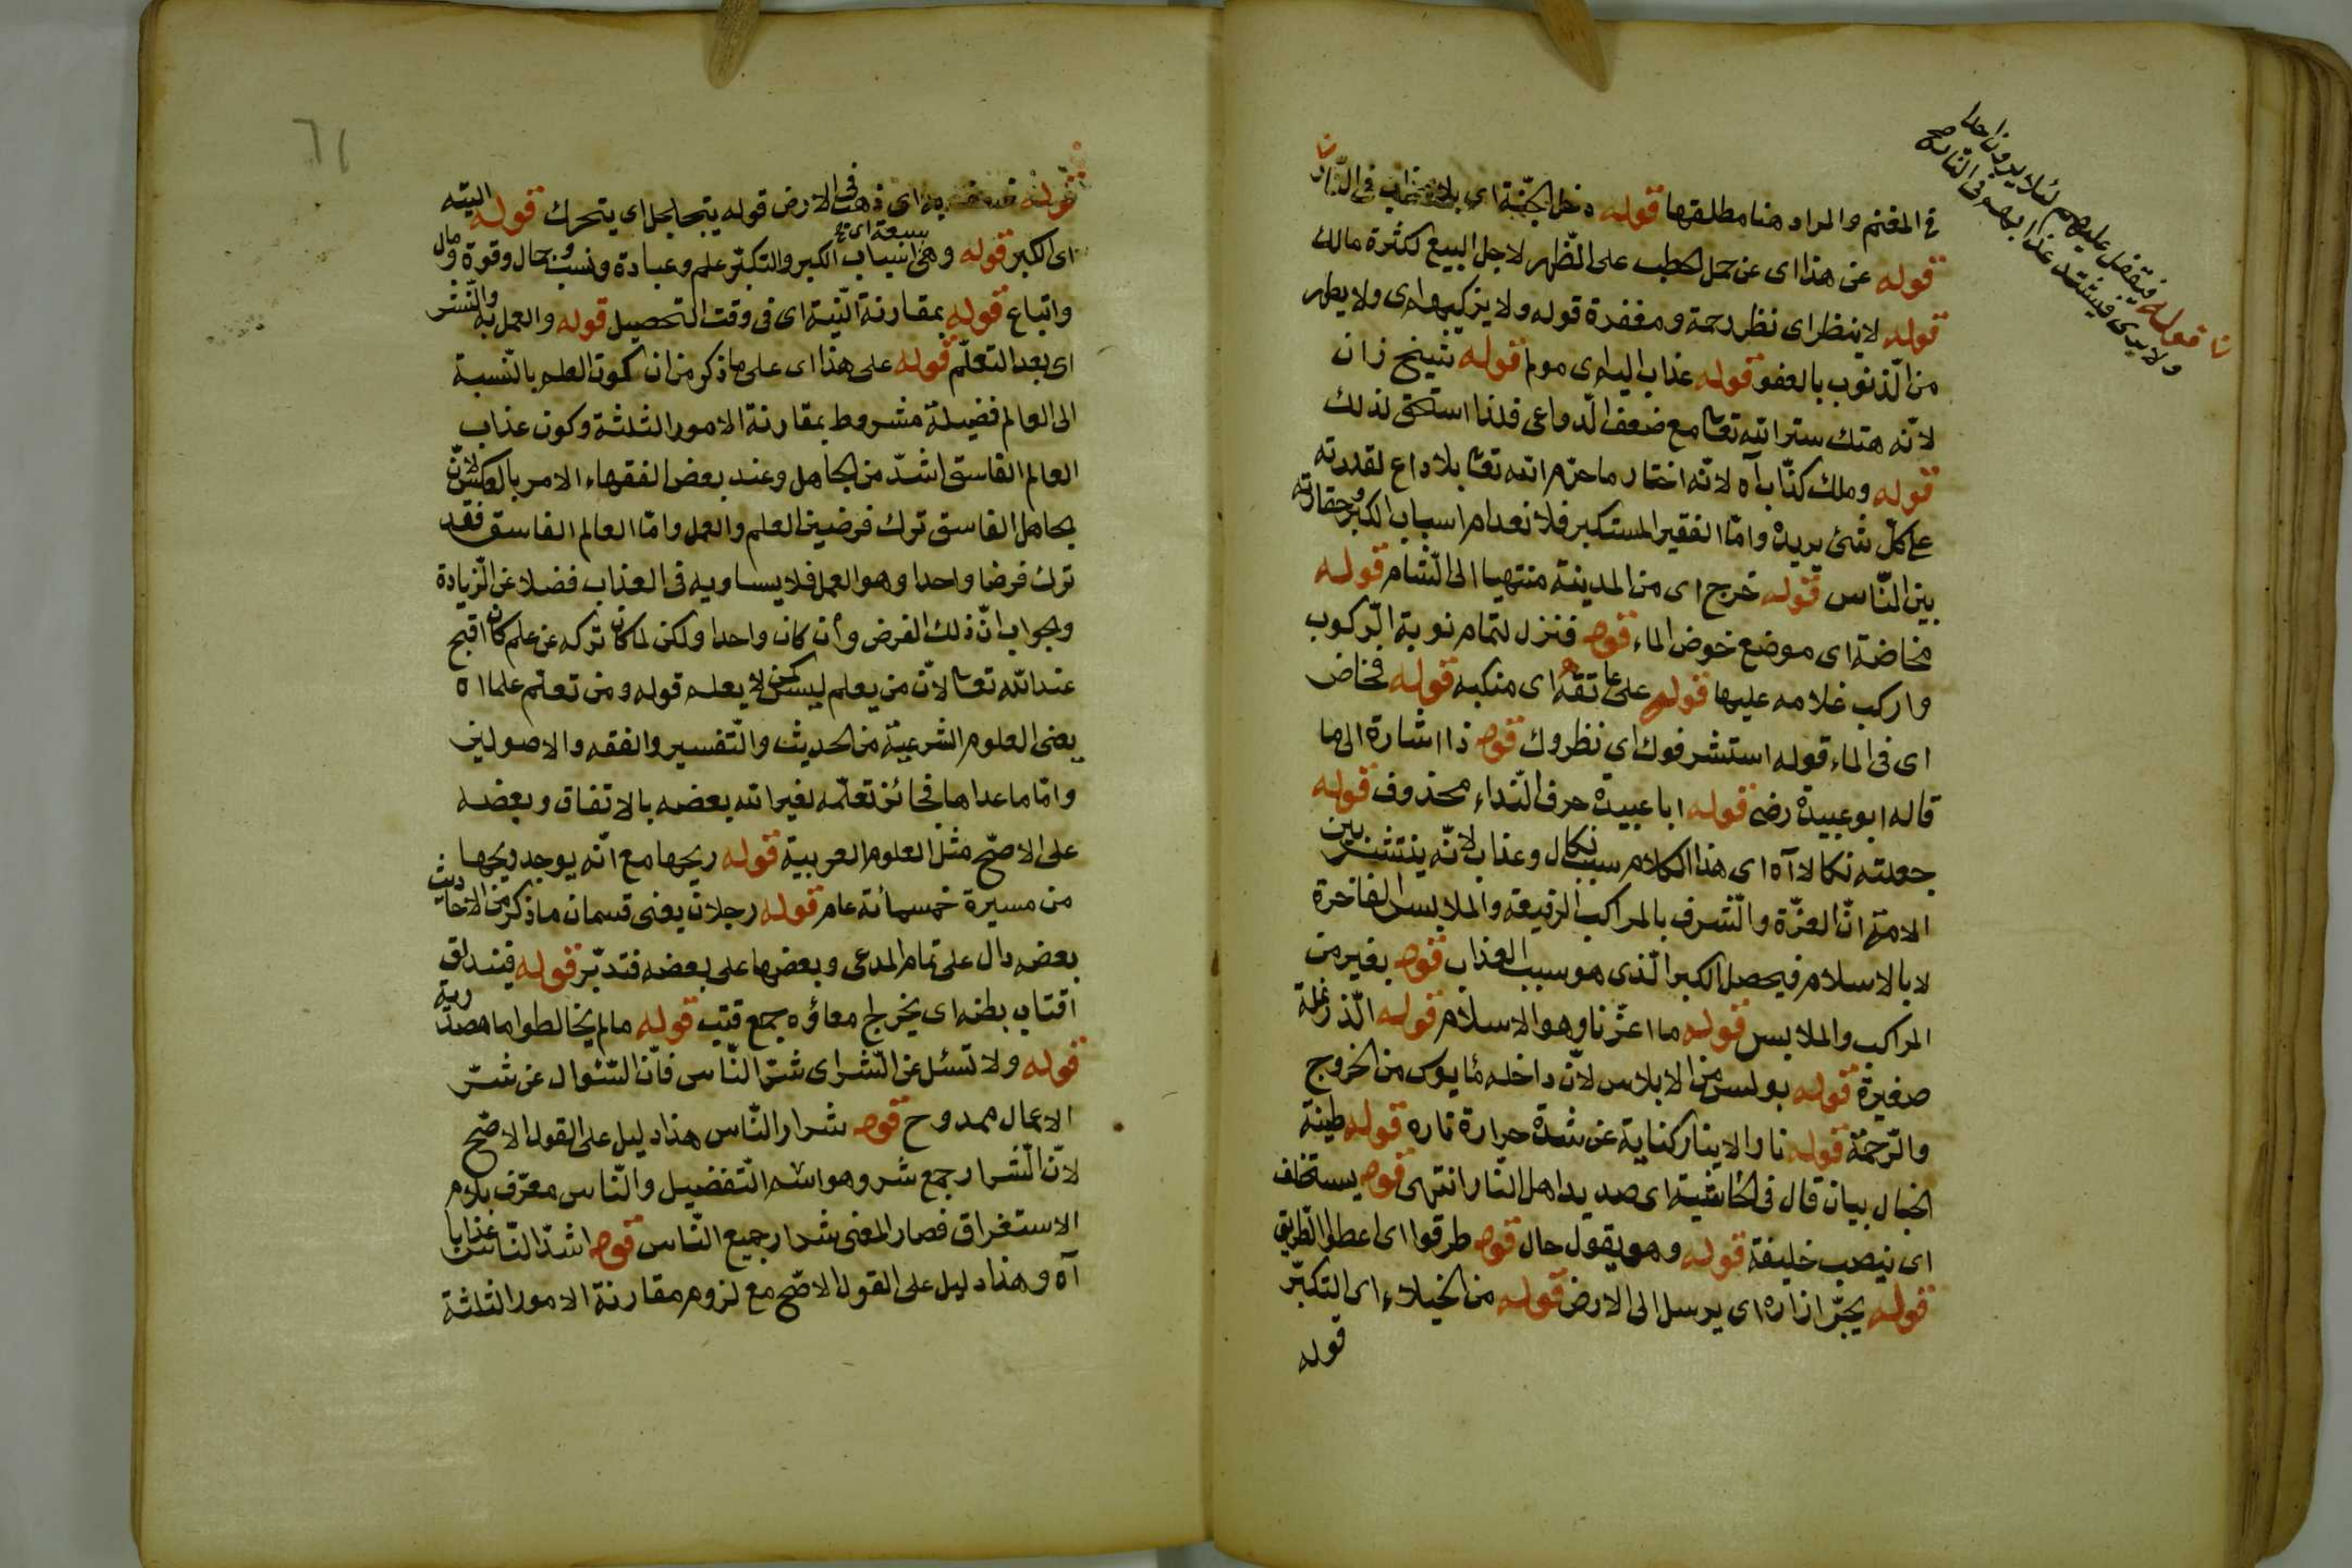 في المغنم والمراد هنا مطلقها قوله دخل الجنّة اى بلا عذاب فى النّار
قوله عن هذا اى عن حمل الحطب على الظّهر لاجل البيع لكثرة مالك
قوله لا ينظر اى نظر رحمة ومغفرة قوله ولا يزكيهم اى ولا يطهر
من الّذنوب بالعفو قوله عذاب اليم اى مولم قوله شيخ زان
لانّه هتك ستر الله تعا مع ضعف الّدواعى فلذا استحق لذلك
قوله وملك كذّاب آه لانّه اختار ما حرّم الله تعا بلا داع لقدرته
على كلّ شئ يريده وامّا الفقير المستكبر فلانعدام اسباب الكبر وحقارته
بين النّاس قوله خرج اى من المدينة منتهيا الى الشّام قوله
مخاضة اى موضع خوض الماء قوله فنزل لتمام نوبة الرّكوب
واركب غلامه عليها قوله على عاتقه اى منكبه قوله فخاض
اى فى الماء قوله استشرفوك اى نظروك قوله ذا اشارة الى ما
قاله ابو عبيدة رضى قوله ابا عبيدة حرف النّداء محذوف قوله
جعلته نكالا آه اى هذا الكلام سبب نكال وعذاب لانّه ينتشر بين
الامّة انّ العزّة والشّرف بالمراكب الرفيعة والملابس الفاخرة
لا بالاسلام فيحصل الكبر الّذى هو سبب العذاب قوله بغير من
المراكب والملابس قوله ما اعزّنا وهو الاسلام قوله الّذر نملة
صغيرة قوله بولس من الابلاس لانّ داخله مأيوس من الخروج
والرّحمة قوله نار الانيار كناية عن شدة حرارة ناره قوله طينة
الخبال بيان قال فى الحاشية اى صديد اهل النّار انتهى قوله يستخلف
اى ينصب خليفة قوله وهو يقول حال قوله طرقوا اى اعطوا الطّريق
قوله يجرّ ازاره اى يرسل الى الارض قوله من الخيلاء اى التكبّر
قوله
قوله فيقفل عليهم لئلا يرون احدا
ولا يرى فيشتد عذابهم فى النّار صح
قوله اى ذهب فى الارض قوله يتجلجل اى يتحرك قوله اليته
اى الكبر قوله وهى اسباب الكبر والتكبّر سبعة علم وعبادة ونسب وجمال وقوة ومال
واتباع قوله بمقارنة النّية اى فى وقت التحصيل قوله والعمل به والنّشر
اى بعد التعلّم قوله على هذا اى على ما ذكر من ان كون العلم بالنّسبة
الى العالم فضيلة مشروط بمقارنة الامور الثلثة وكون عذاب
العالم الفاسق اشدّ من الجاهل وعند بعض الفقهاء الامر بالعكس لانّ
الجاهل الفاسق ترك فرضين العلم والعمل وامّا العالم الفاسق فقد
ترك فرضا واحدا وهو العمل فلا يساويه فى العذاب فضلا عن الزّيادة
والجواب انّ ذلك الفرض وأن كان واحدا ولكن لما كان تركه عن علم كان اقبح
عند الله تعا لانّ من يعلم ليس كمن لا يعلم قوله ومن تعلّم علما اه
يعنى العلوم الشرعيّة من الحديث والتّفسير والفقه والاصولين
وامّا ما عداها فجائز تعلّمه لغير الله بعضه بالاتفاق وبعضه
على الاصحّ مثل العلوم العربية قوله ريحها مع انّه يوجد ريحها
من مسيرة خمسمائة عام قوله رجلان يعنى قسمان ما ذكر من الاحاديث
بعضه دال على تمام المدعى وبعضها على بعضه فتدبّر قوله فيندلق
اقتاب بطنه اى يخرج امعاؤه جمع قتب قوله ما لم يخالطوا ما مصدرية
قوله ولا تسئل عن الشّر اى شرّ النّاس فانّ السّئوال عن شرّ
الاعمال ممدوح قوله شرار النّاس هذا دليل على القول الاصحّ
لانّ الشّرار جمع شر وهو اسم التّفضيل والنّاس معرّف بلام
الاستغراق فصار المعنى شرار جميع النّاس قوله اشدّ النّاس عذابا
آه وهذا دليل على القول الاصّح مع لزوم مقارنة الامور الثلثة